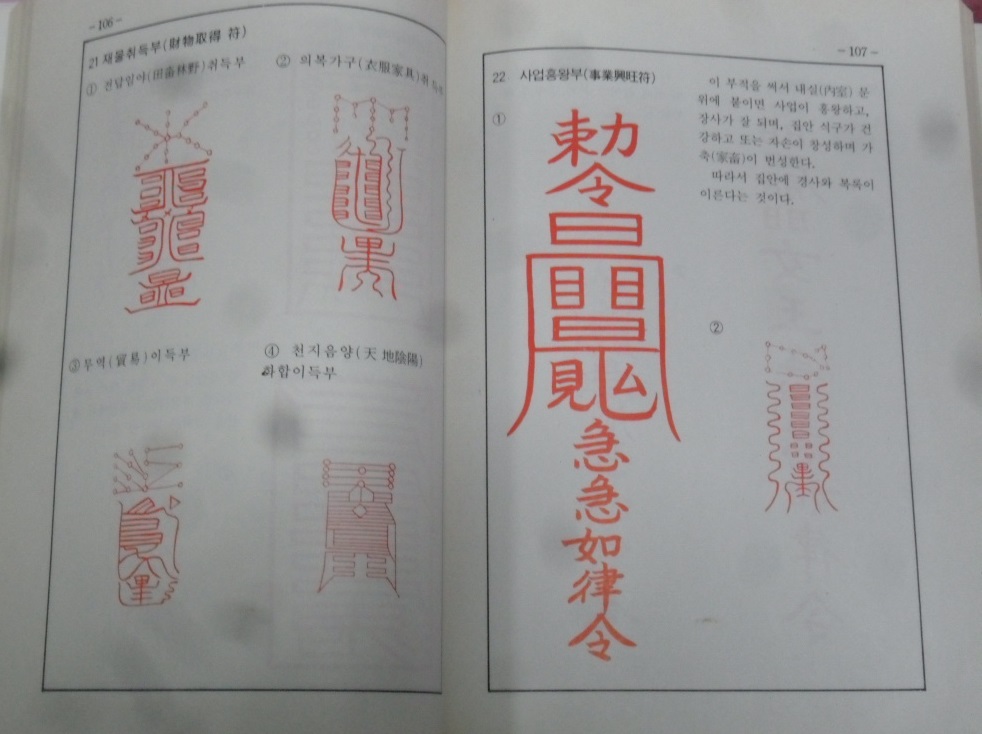 -106-
21 재물취득부(財物取得 符)
① 전답임야(田畓林野)취득부
② 의복가구(衣服家具)취득부
③무역(貿易)이득부
④ 천지음양(天 地陰陽)
화합이득부
-107-
22 사업흥왕부(事業興旺符)
①
勅
令
急
急
如
律
令
이 부적을 써서 내실(內室) 문
위에 붙이면 사업이 흥왕하고,
장사가 잘 되며, 집안 식구가 건
강하고 또는 자손이 창성하며 가
축(家畜)이 번성한다.
따라서 집안에 경사와 복록이
이른다는 것이다.
②